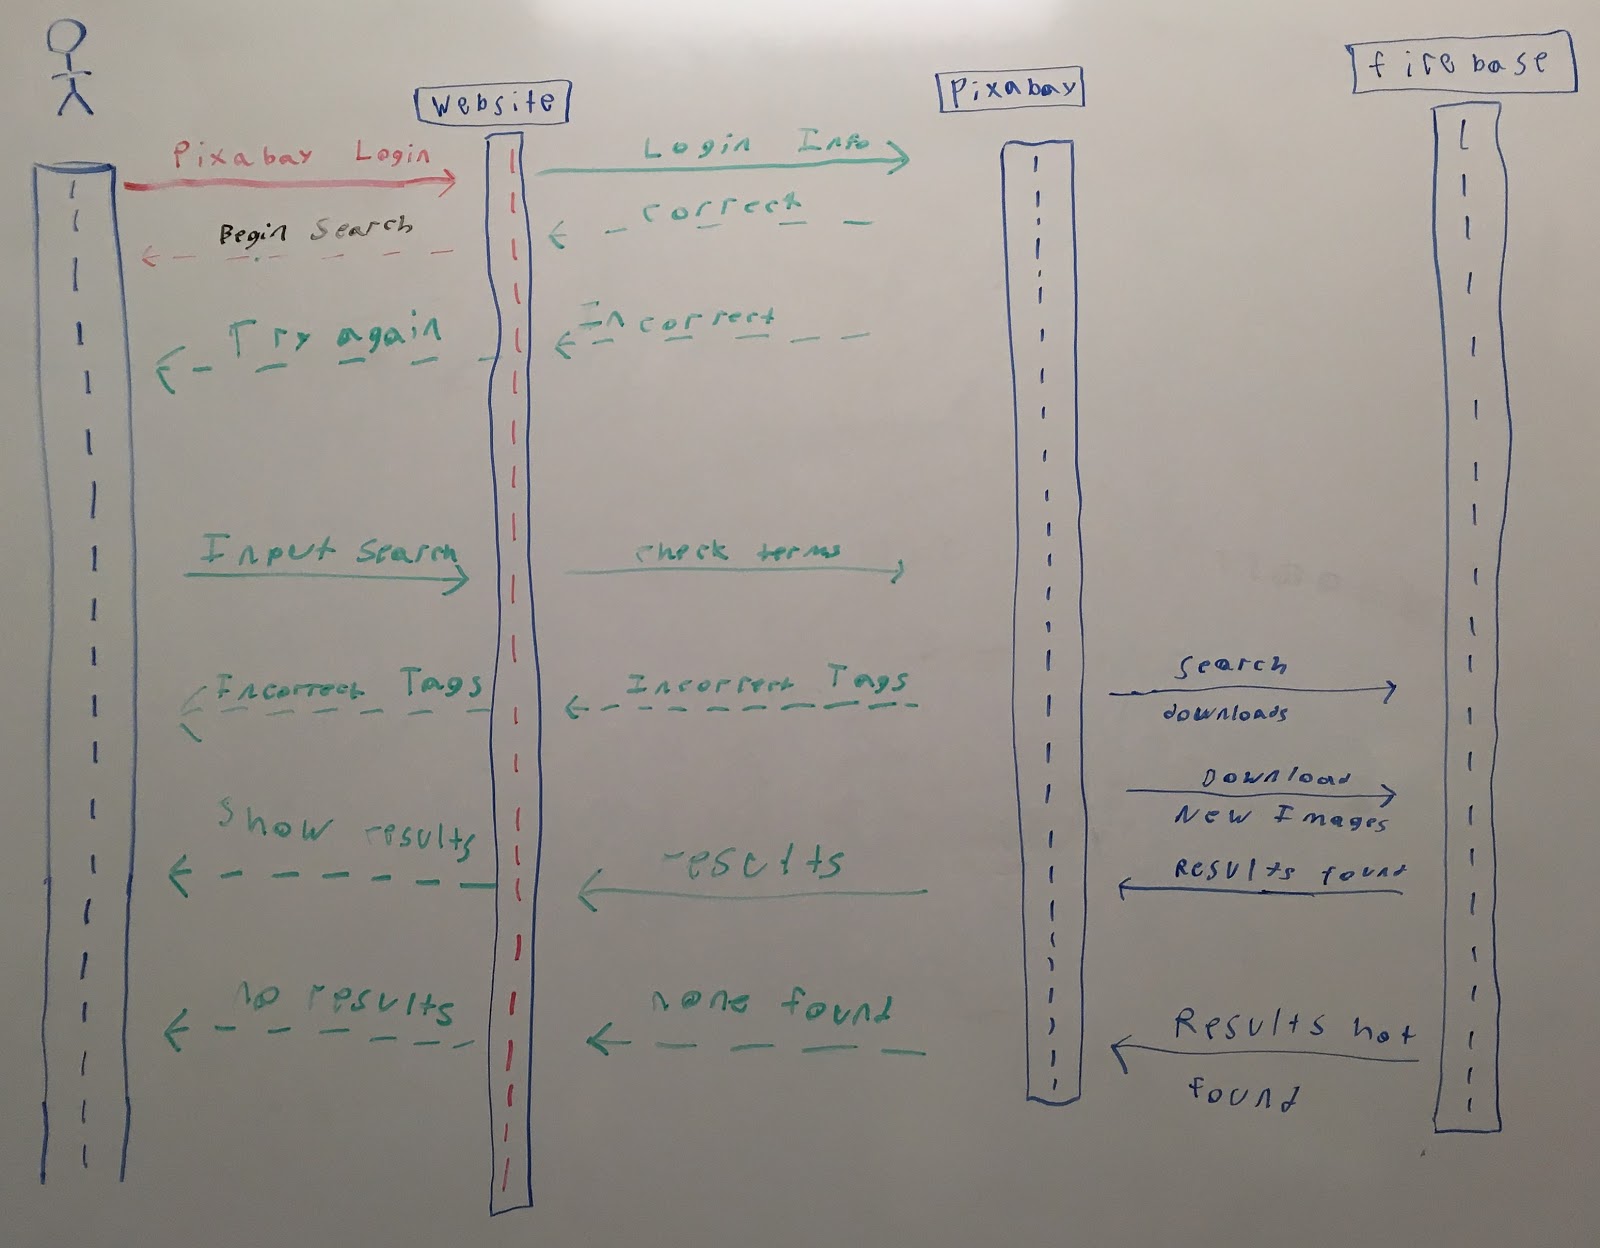 Website
Pixabay
firebase
Pixabay Login
Login Info
Begin Search
correct
Try again
Incorrect
Input Search
check terms
Incorrect Tags
Incorrect Tags
Search
downloads
Download
New Images
Show results
results
Results found
no results
none found
Results not
found